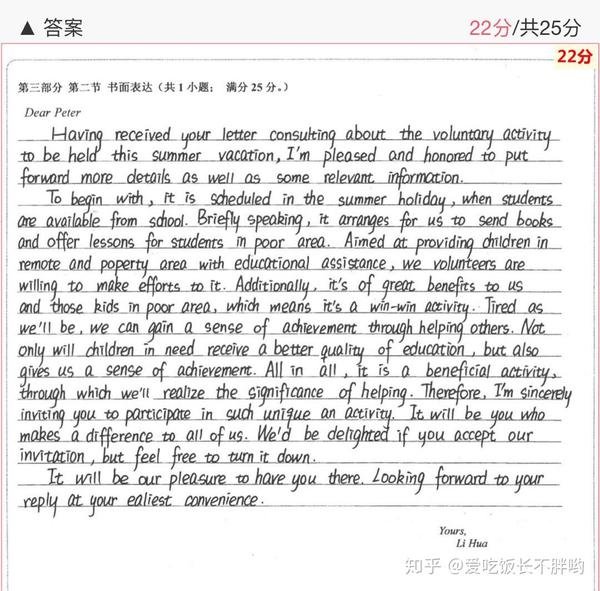 ▲ 答案
22分/共25分
22分
第三部分 第二节 书面表达（共1小题； 满分25分。）
Dear Peter
Having received your letter consulting about the voluntary activity
to be held this summer vacation, I'm pleased and honored to put
forward more details as well as some relevant information.
To begin with, it is scheduled in the summer holiday, when students
are available from school. Briefly speaking, it arranges for us to send books
and offer lessons for students in poor area. Aimed at providing children in
remote and poperty area with educational assistance, we volunteers are
willing to make efforts to it. Additionally, it's of great benefits to us
and those kids in poor area, which means it's a win-win activity. Tired as
we'll be, we can gain a sense of achievement through helping others. Not
only will children in need receive a better quality of education, but also
gives us a sense of achievement. All in all, it is a beneficial activity,
through which we'll realize the significance of helping. Therefore, I'm sincerely
inviting you to participate in such unique an activity. It will be you who
makes a difference to all of us. We'd be delighted if you accept our
invitation, but feel free to turn it down.
It will be our pleasure to have you there. Looking forward to your
reply at your ealiest convenience.
Yours,
Li Hua
知乎 @爱吃饭长不胖哟